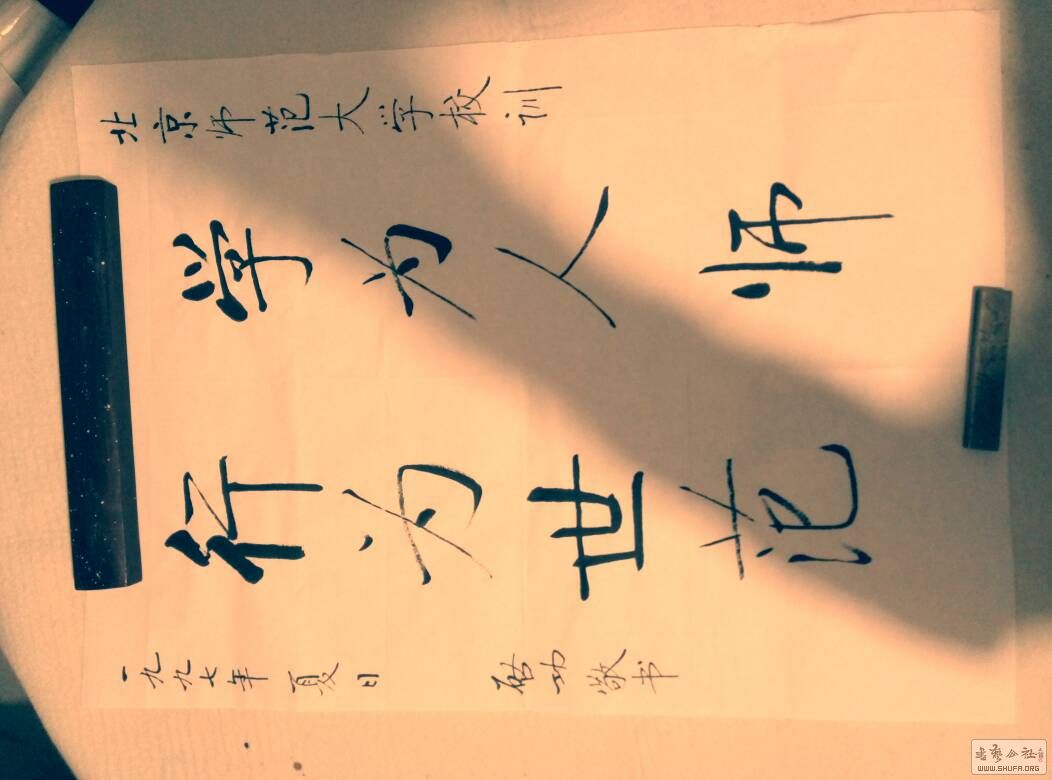 北京师范大学校训
学为人师
行为世范
一九九七年夏日 启功敬书
書藝公社
WWW.SHUFA.ORG